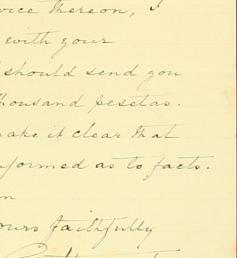 vice thereon, I
with your
should send you
thousand pesetas.
make it clear that
nformed as to facts.
n
ours faithfully